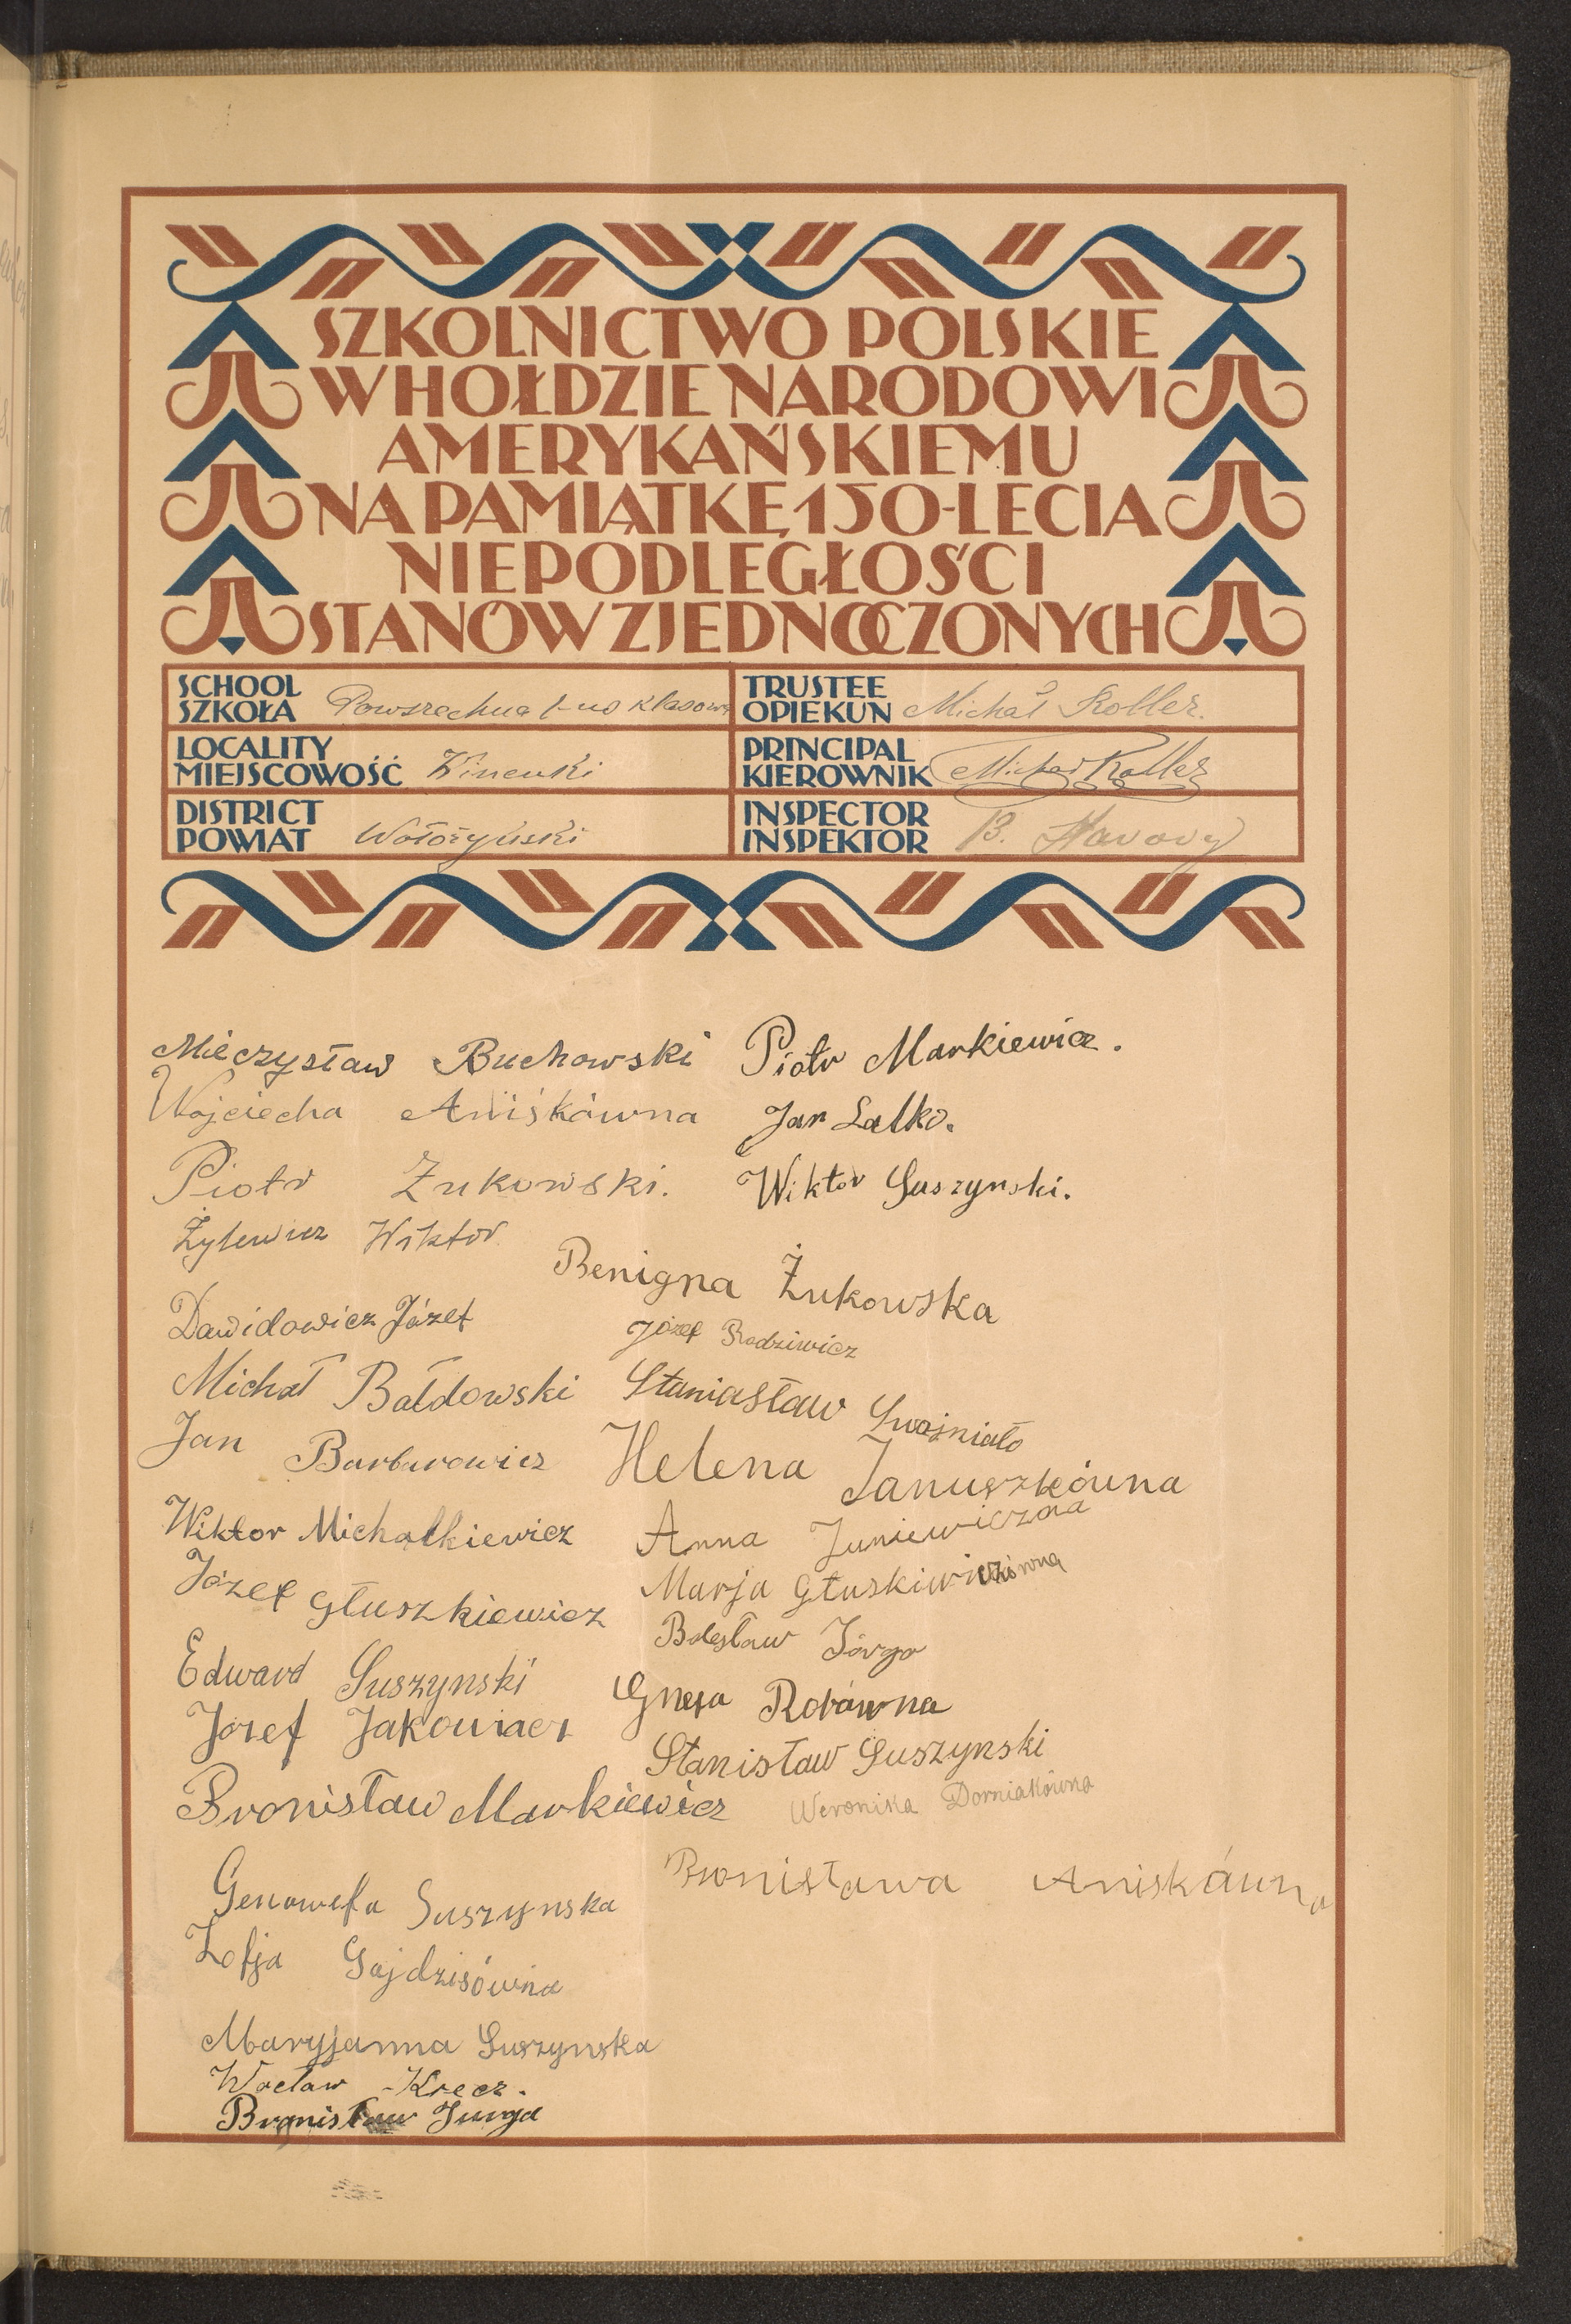 SZKOLNICTWO POLSKIE
W HOŁDZIE NARODOWI
AMERYKAŃSKIEMU
NA PAMIĄTKĘ 150-LECIA
NIEPODLEGŁOŚCI
STANÓW ZJEDNOCZONYCH
SCHOOL
SZKOŁA Powszechna 1-no klasowa
TRUSTEE
OPIEKUN Michał Koller.
LOCALITY
MIEJSCOWOŚĆ Wincuki
PRINCIPAL
KIEROWNIK Michał Koller
DISTRICT
POWIAT Wołożyński
INSPECTOR
INSPEKTOR B.
Mieczysław Buchowski
Wojciecha Aniśkówna
Piotr Żukowski.
Żylewicz Wiktor
Dawidowicz Józef
Michał Bałdowski
Jan Barbarowicz
Wiktor Michalkiewicz
Józef Głuszkiewicz
Edward Suszynski
Józef
Bronisław Markiewicz
Genowefa Suszynska
Zofja Gajdzisówna
Maryjanna Suszynska
Wacław Krecz.
Bronisław Jurga
Piotr Markiewicz.
Jan Latko.
Wiktor Suszynski.
Benigna Żukowska
Józef Radziwicz
Staniasław Swojniało
Helena Januszkówna
Anna Juniewiczona
Marja Głuskiwiczówna
Bolesław
Robówna
Stanisław Suszynski
Weronika Dorniakówna
Bronisława Aniskówna